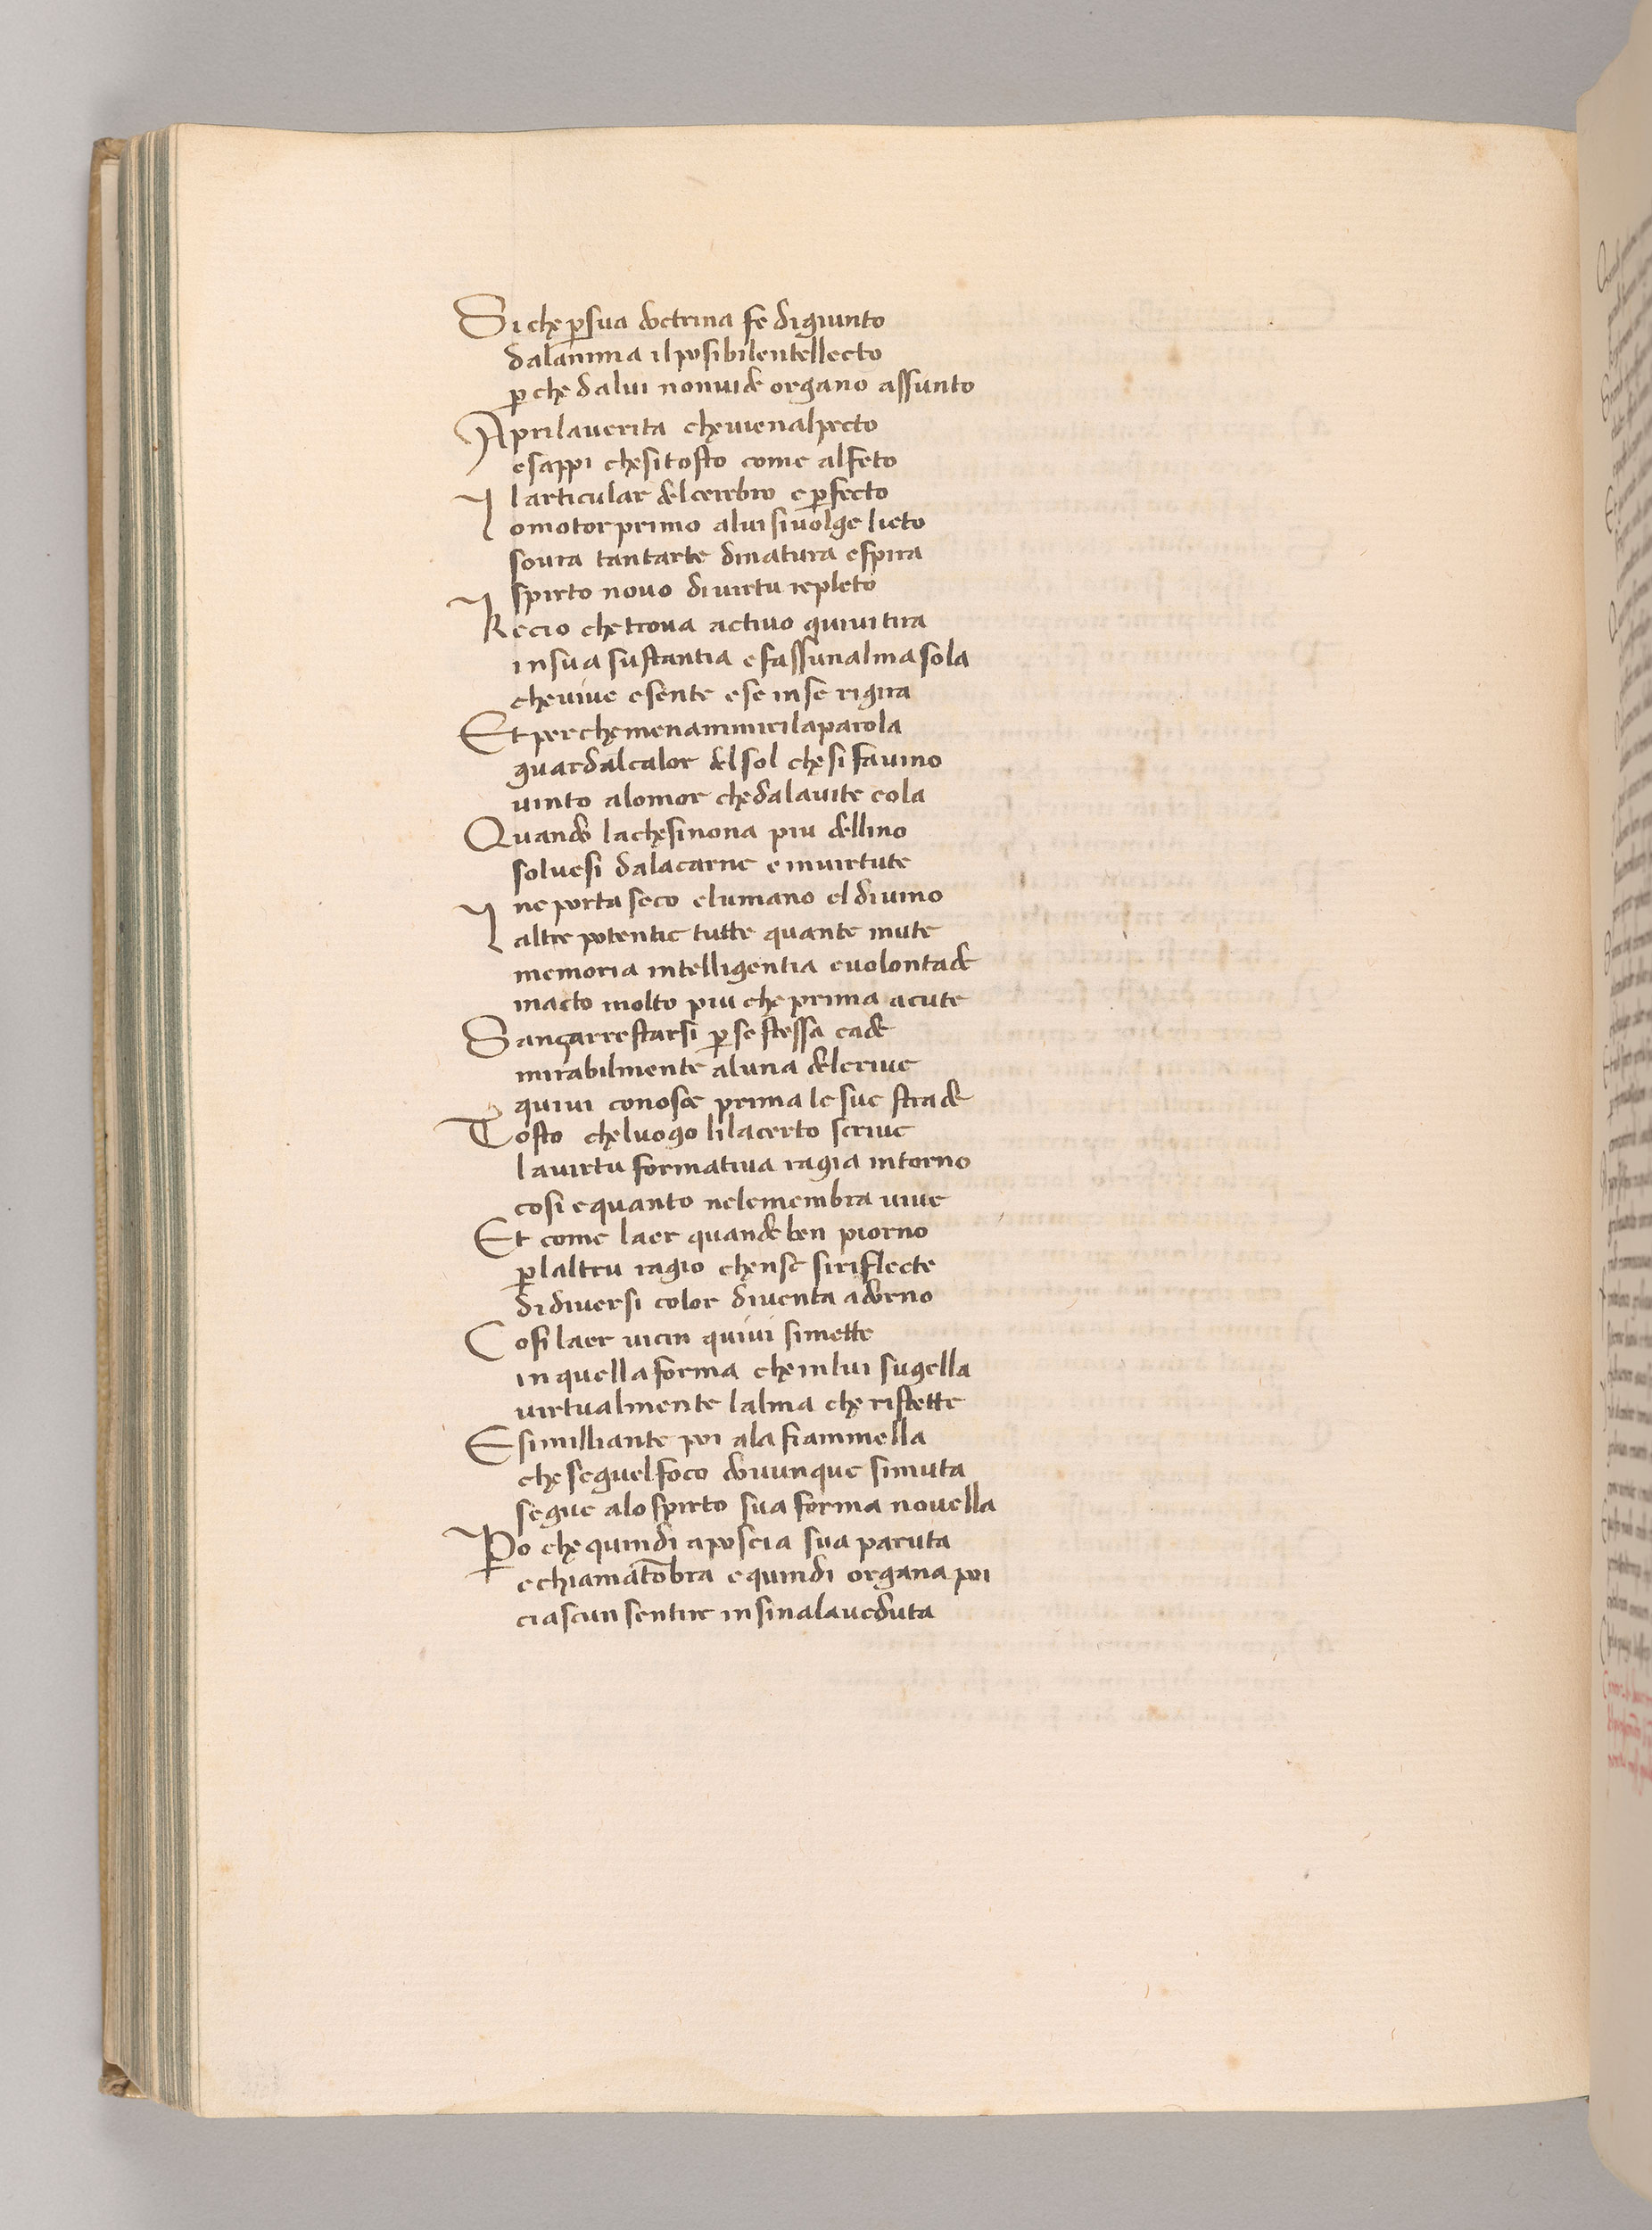 Si che ꝑ sua doctrina fe digiunto
dalanima il posibilentellecto
ꝑche dalui nonuide organo assunto
Apri laverita cheuienalpecto
esappi chesitosto come alfeto
larticular delcerebro eꝑfecto
Jomotorprimo alui siuolge lieto
soura tantarte dinatura espira
spirto novo diuirtu repleto
Kecio chetroua activo quiuitira
insua sustantia efassunalmasola
cheuive esente ese inse rigira
Et perchemenammirilaparola
guardalcalor delsol chesi fauino
uinto alomor chedalauite cola
Quando lachesinona piu dellino
soluesi dalacarne e inuirtute
Jne porta seco elumano eldiuino
altre potentie tutte quante mute
memoria intelligentia euolontade
inacto molto piu che prima acute
Sançarrestarsi ꝑ se stessa cade
mirabilmente aluna delerive
quiui conosce prima le sue strade
Tosto cheluogo lilacerto scrive
lauirtu formatiua ragia intorno
cosi equanto nelemembra uive
Et come laer quandeben piorno
ꝑlaltru ragio chense siriflecte
didiversi color diventa adorno
Cosi laer uicin quivi simette
inquella forma cheinlui sugella
uirtualmente lalma che ristette
Esimilliante poi ala fiammella
cheseguelfoco dovunque simuta
segue alo spirto sua forma nouella
Ꝑo che quindi aposcia sua paruta
echiamatõbra equindi organa poi
ciascun sentire insinalaueduta